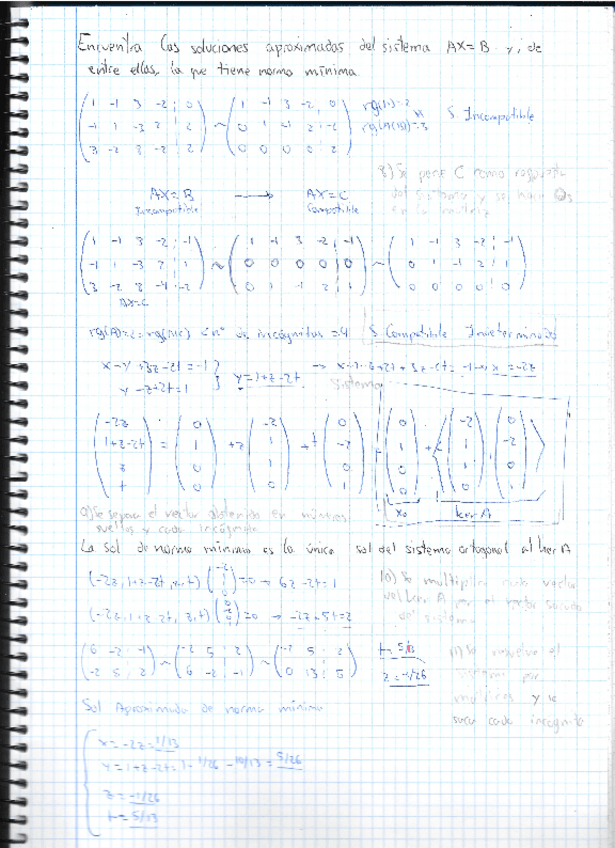 Encuentra las soluciones aproximadas del sistema AX=B y, de
entre ellas, la que tiene norma mínima.
1 -1 3 -2 | 0
-1 1 -3 2 | 2
3 -2 8 -2 | 2
~
1 -1 3 -2 0
0 1 -1 2 -2
0 0 0 0 2
S. Incompatible
AX=B → AX=C
Incompatible Compatible
1 -1 3 -2 | -1
-1 1 -3 2 | 1
3 -2 8 -4 | -2
AX=C
~
1 -1 3 -2 | -1
0 0 0 0 0
0 1 -1 2 | 1
~
1 -1 3 -2 | -1
0 1 -1 2 | 1
0 0 0 0 | 0
nº de incógnitas = 4 S. Compatible Indeterminado
x-y+3z-2t=-1
y-z+2t=1
y=1+z-2t
Sistema
-2z
1+z-2t
z
t
=
0
1
0
0
+z
-2
1
1
0
+t
0
-2
0
1
0
1
0
0
+
-2
1
1
0
,
0
-2
0
1
x0 ker A
9) Se separa el vector obtenido en números
sueltos y cada incógnita
La sol de norma mínima es la única sol del sistema ortogonal al ker A
(-2z, 1+z-2t, z, t) =0 → 6z-2t=1
(-2z, 1+z-2t, z, t) =0 → -2z+5t=2
10) Se multiplica cada vector
del ker A por el vector sacado
del sistema
6 -2 | -1
-2 5 | 2
~
-2 5 | 2
6 -2 | -1
~
-2 5 | 2
0 13 | 5
t=5/13
z=-1/26
11) Se resuelve el
sistema por
matrices y se
saca cada incógnita
Sol Aproximada de norma mínima
x=-2z=1/13
y=1+z-2t=1-1/26-10/13=5/26
z=-1/26
t=5/13